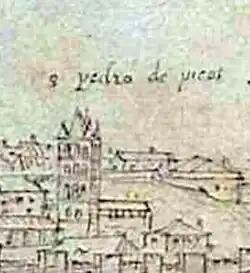 s pedro de picos